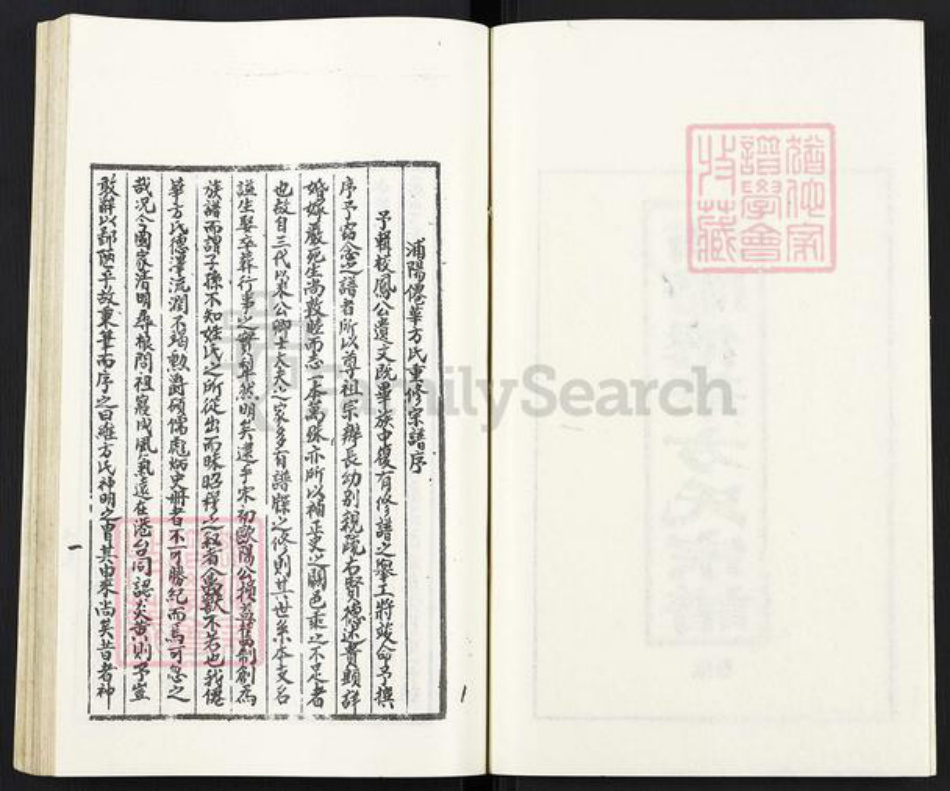 浦陽僊華方氏重修宗譜序
予輯校鳳公遺文既畢族中復有修譜之舉工將竣命予撰
序予窃念之譜者所以尊祖宗辨長幼別親疏右賢德述貴顯詳
婚嫁嚴死生尚敦睦而志一本萬殊亦所以補正史之闕邑乘之不足者
也故自三代以來公卿士大夫之家多有譜牒之修則其世系本支名
諡生娶卒葬行事之實犁然明矣逮乎宋初歐陽公損益舊制創為
族譜而謂子孫不知姓氏之所從出而昧昭穆之叙者禽獸不若也我僊
華方氏德澤流潤不竭勲爵碩儒彪炳史冊者不可勝紀而焉可忽之
哉况今國家清明尋根問祖寖成風氣遠在港台同認炎黃則予豈
敢辭以鄙陋乎故秉筆而序之曰維方氏神明之胄其由來尚矣昔者神
一
1
猶他家
譜學會
收藏
FamilySearch